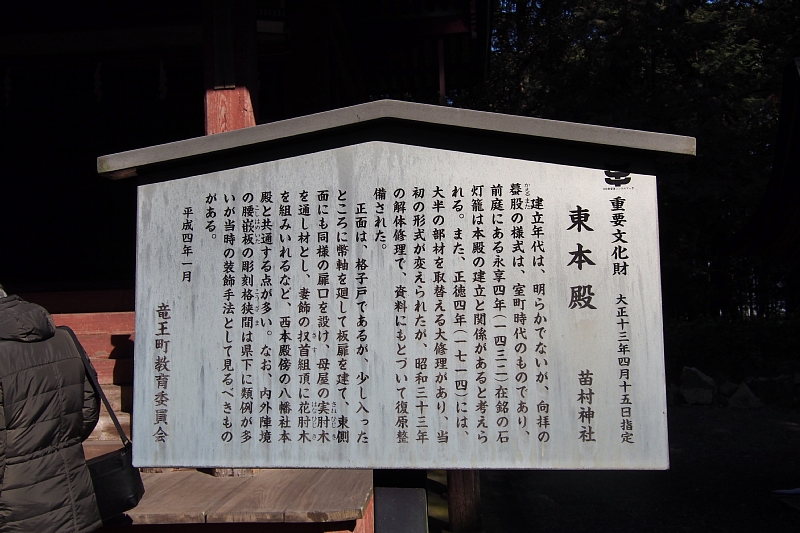 重要文化財　大正十三年四月十五日指定
東本殿　苗村神社
建立年代は、明らかでないが、向拝の
蟇股の様式は、室町時代のものであり、
前庭にある永享四年（一四三二）在銘の石
灯籠は本殿の建立と関係があると考えら
れる。また、正徳四年（一七一四）には、
大半の部材を取替える大修理があり、当
初の形式が変えられたが、昭和三十三年
の解体修理で、資料にもとづいて復原整
備された。
正面は、格子戸であるが、少し入った
ところに幣軸を廻して板扉を建て、東側
面にも同様の扉口を設け、母屋の実肘木
を通し材とし、妻飾の扠首組頂に花肘木
を組みいれるなど、西本殿傍の八幡社本
殿と共通する点が多い。なお、内外陣境
の腰嵌板の彫刻格狭間は県下に類例が多
いが当時の装飾手法として見るべきもの
がある。
平成四年一月
竜王町教育委員会